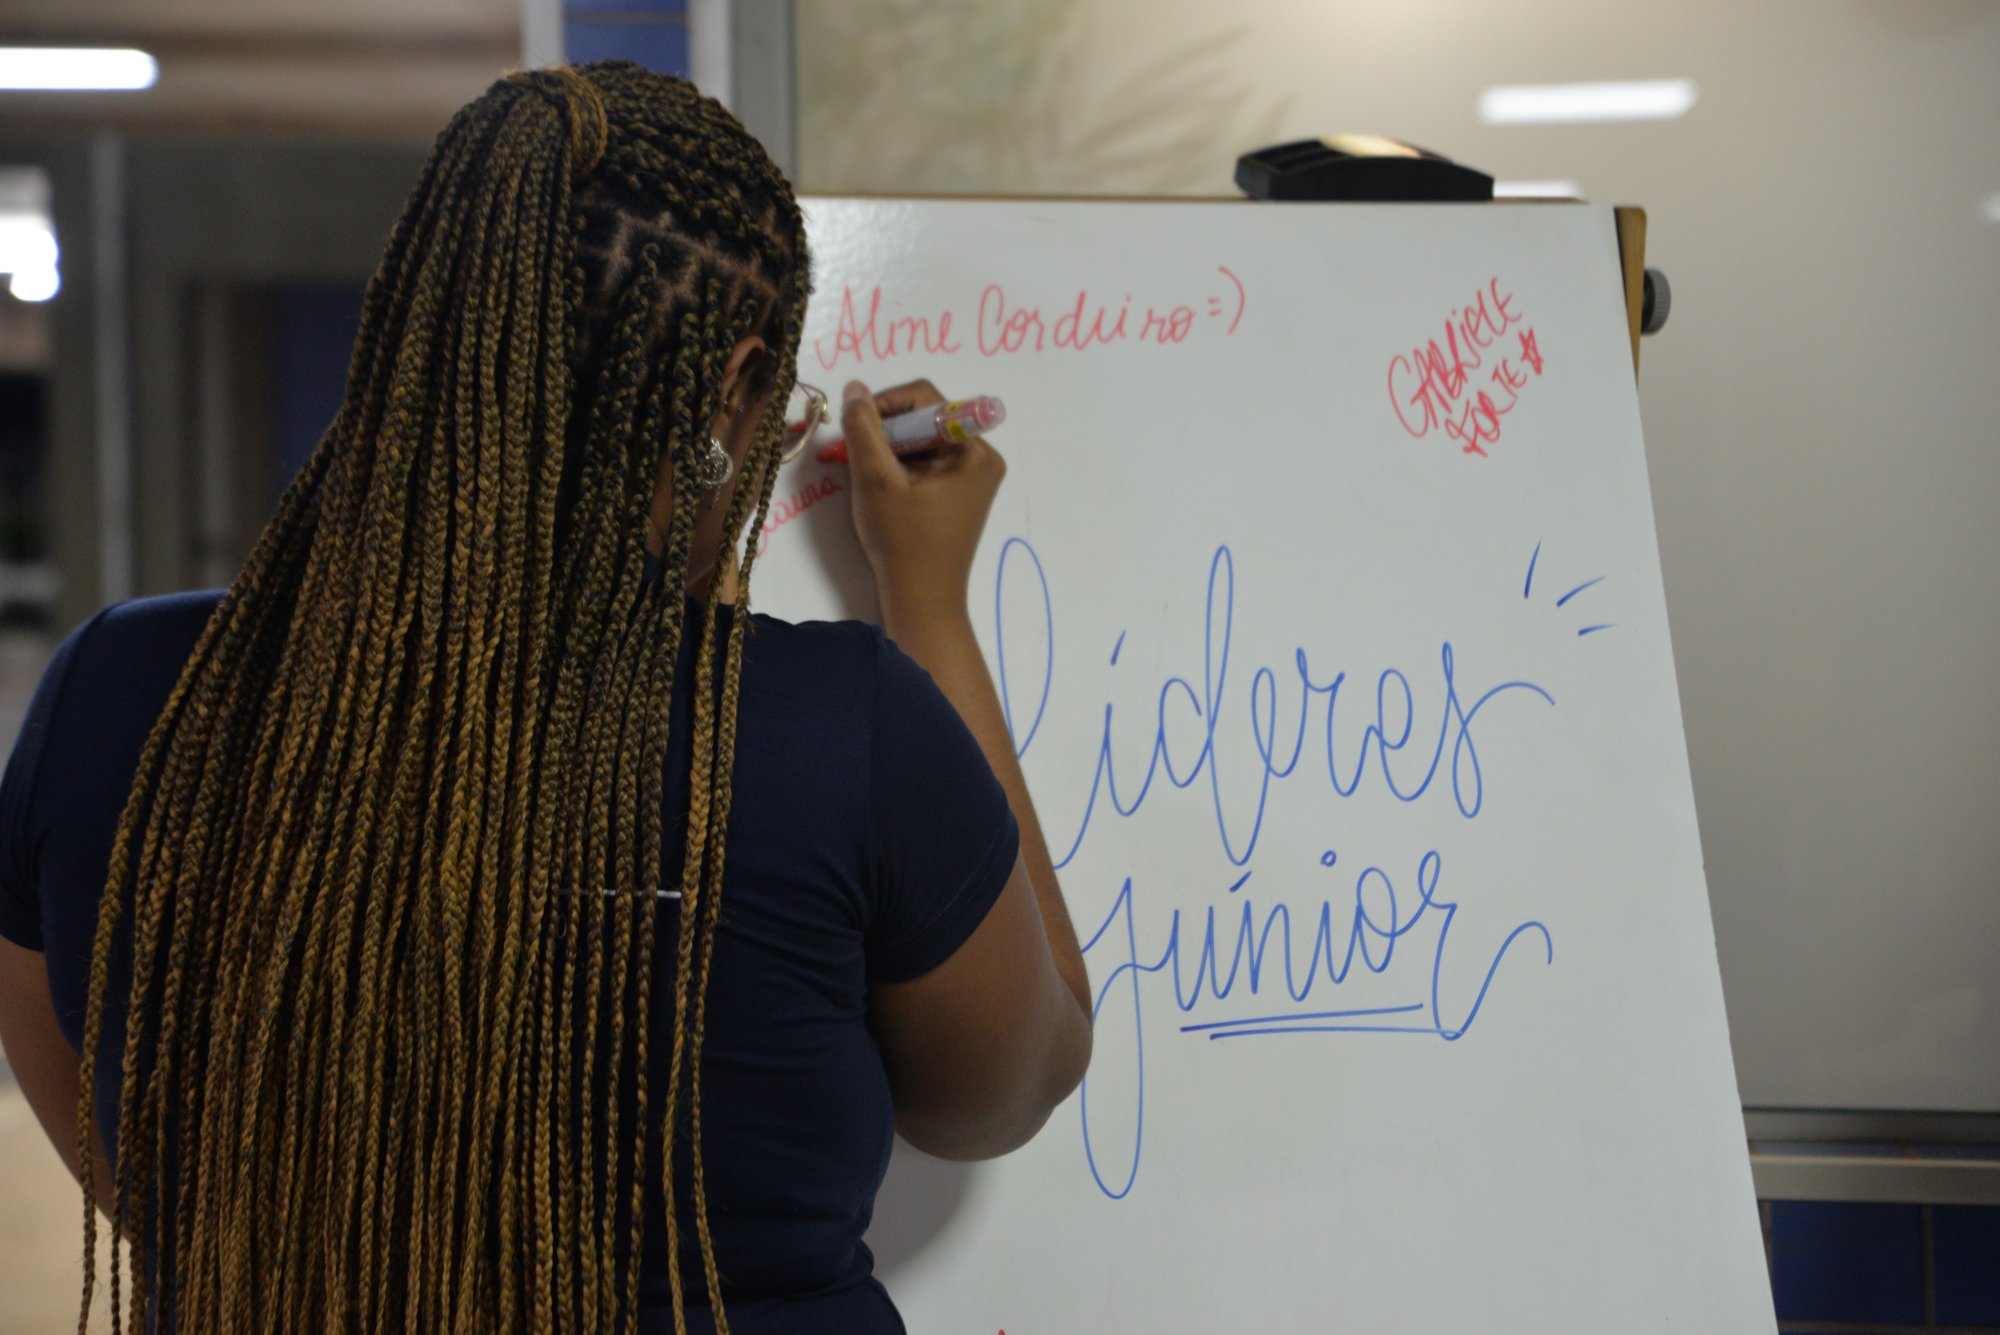 Aline Cordeiro =)
GABRIELE
FORTE
Laura
Líderes
júnior